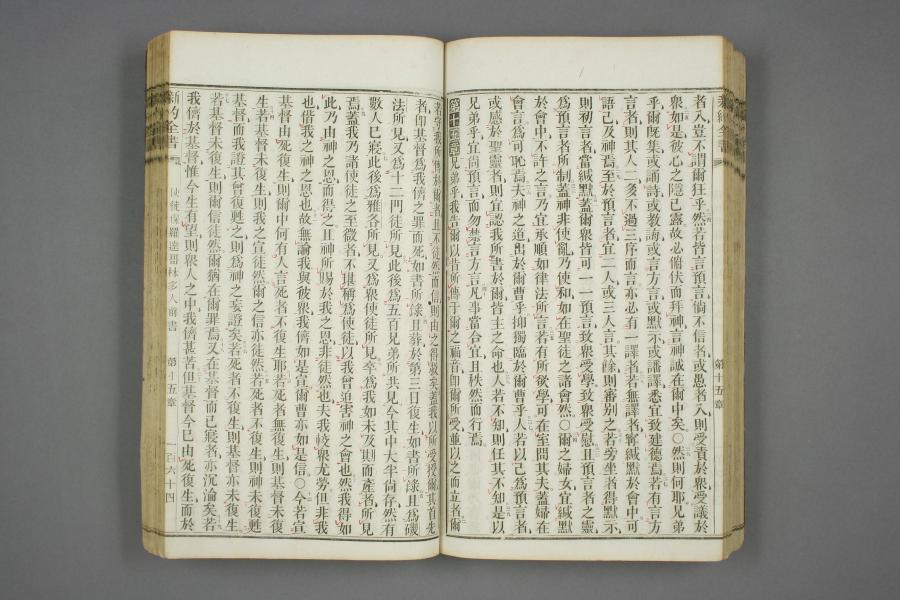 新約全書
第十五章
者入豈不謂爾狂乎然若皆言預言倘不信者或愚者入則受責於衆受議於
衆如是彼心之隱已露故必俯伏而拜神言神誠在爾中矣○然則何耶兄弟
乎爾旣集或誦詩或教誨或方言或默示或譯悉宜致建德焉若有言方
言者則其人二多不過三序而言亦必有一譯者若無譯者寧緘默於會中可
語己及神焉至於預言者宜二人或三人言其餘則審別之若旁坐者得默示
則初言者當緘默蓋爾衆皆可一一預言致衆受學致衆受慰且預言者之靈
爲預言者所制蓋神非使亂乃使和如在聖徒之諸會然○爾之婦女宜緘默
於會中不許之言乃宜承順如律法所言若有所欲學可在室問其夫蓋婦在
會言爲可恥焉夫神之道出於爾曹乎抑獨臨於爾曹乎人若以己爲預言者
或感於聖靈者則宜認我所書於爾皆主之命也人若不知則任其不知是以
兄弟乎宜尚預言而勿禁言方言凡事當合宜且秩然而行焉
第十五章兄弟乎我告爾以昔所傳于爾之福音卽爾所受並以之而立者爾
若守我所傳於爾者且不徒然而信則由之得救矣蓋我以所受授爾其首先
者卽基督爲我儕之罪而死如書所錄且葬於第三日復生如書所錄且爲磯
法所見又爲十二門徒所見此後爲五百兄弟所共見今其中大半尙存然有
數人已寢此後爲雅各所見又爲衆使徒所見卒爲我如未及期而產者所見
焉蓋我乃諸使徒之至微者不堪稱爲使徒以我曾迫害神之會也然我得如
此乃由神之恩而得之且神所賜於我之恩非徒然也夫我較衆尤勞但非我
也偕我之神之恩也故無論我與彼衆我儕如是宣爾曹亦如是信○今若宣
基督由死復生則爾中何有人言死者不復生耶若死者無復生則基督未復
生若基督未復生則我之宣徒然爾之信亦徒然若死者不復生則神未復甦
基督而我證其曾復甦之則爲神之妄證矣若死者不復生則基督亦未復生
若基督未復生則爾信徒然爾猶在爾罪焉又在基督而已寢者亦沉淪矣若
我儕於基督惟今生有望則衆人之中我儕甚苦但基督今已由死復生而於
新約全書
使徒保羅達哥林多人前書
第十五章
一百六十四